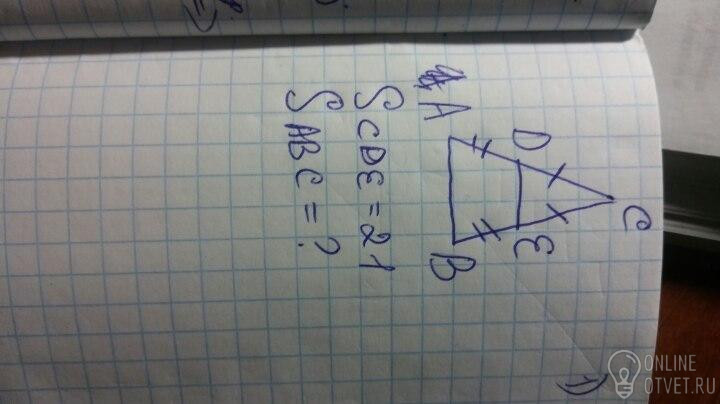 1)
C
D
E
A
B
S CDE = 21
S ABC = ?
ONLINE
OTVET.RU